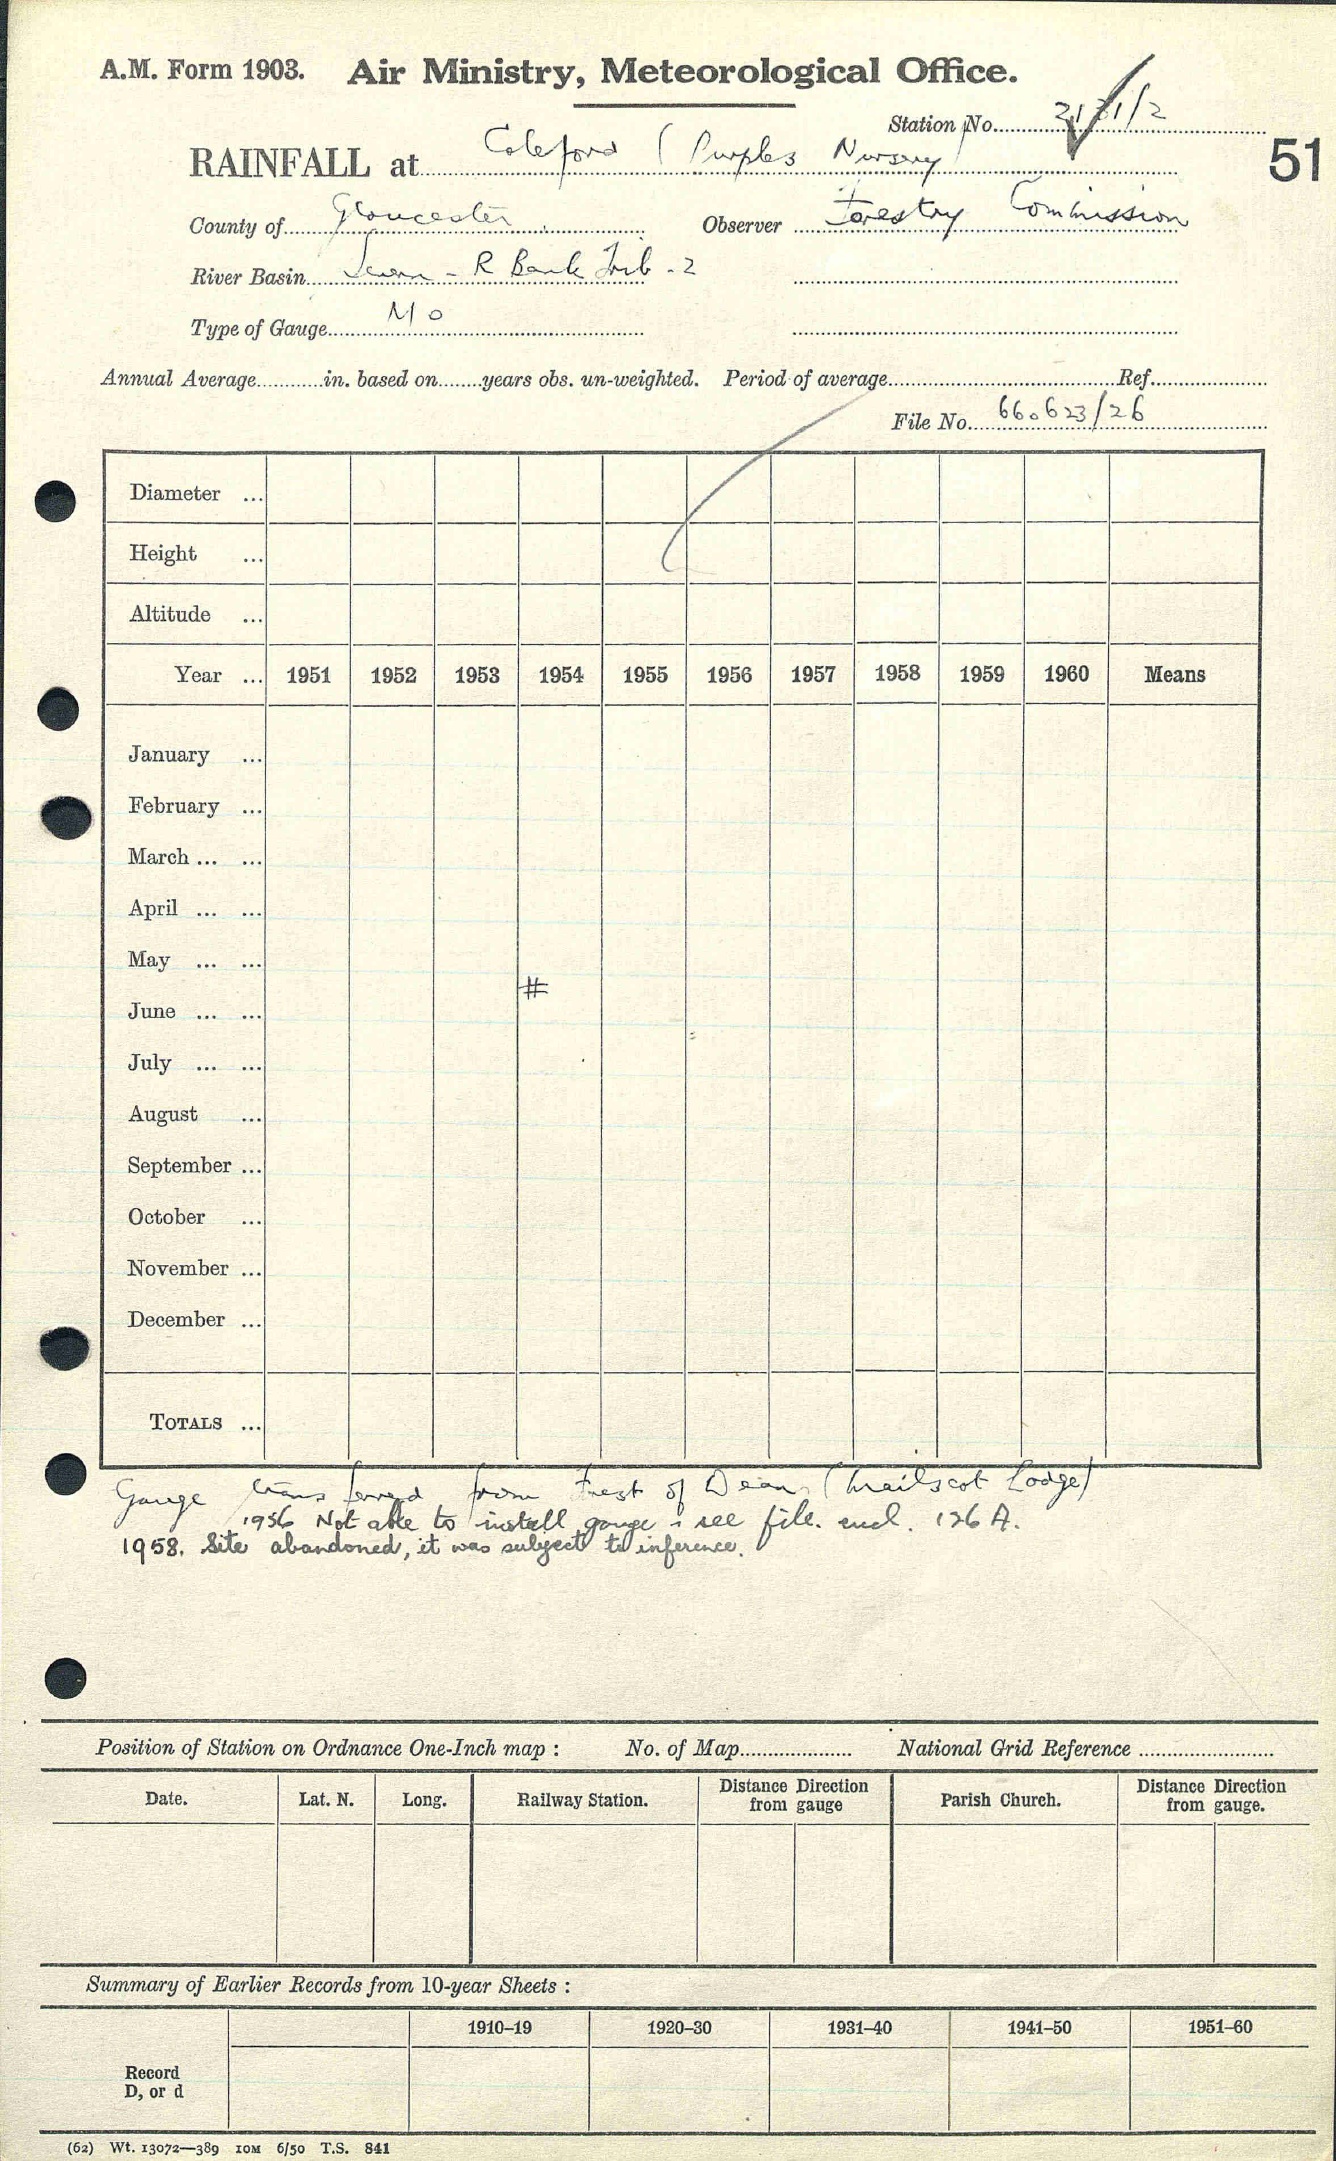 A.M. Form 1903. Air Ministry, Meteorological Office.
Station No. 2131/2
51
RAINFALL at Coleford (Purples Nursery)
County of Gloucester Observer Forestry Commission
River Basin Severn - R Bank Trib - 2
Type of Gauge Mo
Annual Average in. based on years obs. un-weighted. Period of average Ref.
File No. 660623/26
Diameter ...
Height ...
Altitude ...
Year ... 1951 1952 1953 1954 1955 1956 1957 1958 1959 1960 Means
January ...
February ...
March ... ...
April ... ...
May ... ...
#
June ... ...
July ... ...
August ...
September ...
October ...
November ...
December ...
TOTALS ...
Gauge transferred from Forest of Dean (Mailscot Lodge)
1956 Not able to install gauge - see file. encl. 126A.
1958. Site abandoned, it was subject to inference.
Position of Station on Ordnance One-Inch map : No. of Map National Grid Reference
Date. Lat. N. Long. Railway Station. Distance Direction from gauge Parish Church. Distance Direction from gauge.
Summary of Earlier Records from 10-year Sheets :
1910–19 1920–30 1931–40 1941–50 1951–60
Record
D, or d
(62) Wt. 13072—389 10M 6/50 T.S. 841